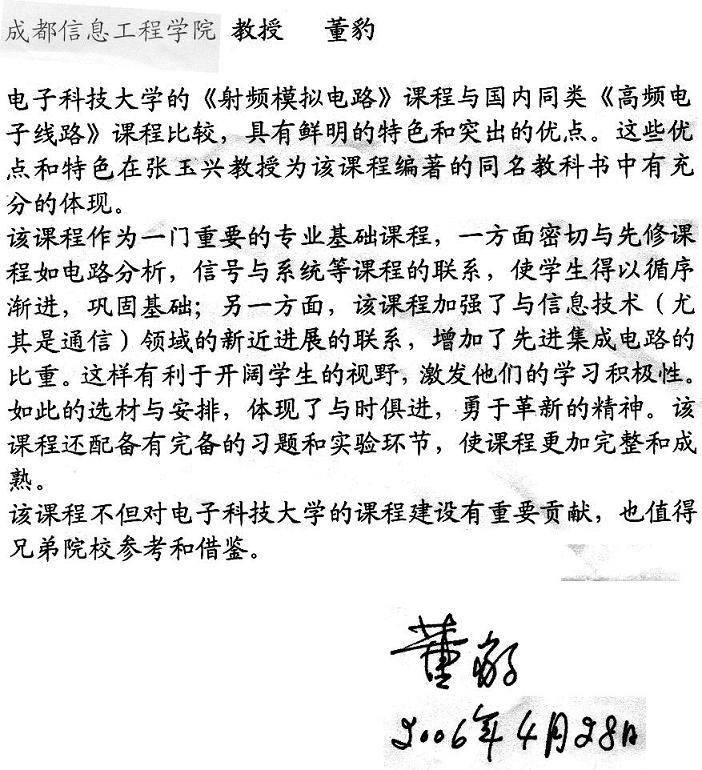 成都信息工程学院 教授 董豹
电子科技大学的《射频模拟电路》课程与国内同类《高频电
子线路》课程比较，具有鲜明的特色和突出的优点。这些优
点和特色在张玉兴教授为该课程编著的同名教科书中有充
分的体现。
该课程作为一门重要的专业基础课程，一方面密切与先修课
程如电路分析，信号与系统等课程的联系，使学生得以循序
渐进，巩固基础；另一方面，该课程加强了与信息技术（尤
其是通信）领域的新近进展的联系，增加了先进集成电路的
比重。这样有利于开阔学生的视野，激发他们的学习积极性。
如此的选材与安排，体现了与时俱进，勇于革新的精神。该
课程还配备有完备的习题和实验环节，使课程更加完整和成
熟。
该课程不但对电子科技大学的课程建设有重要贡献，也值得
兄弟院校参考和借鉴。
董豹
2006年4月28日